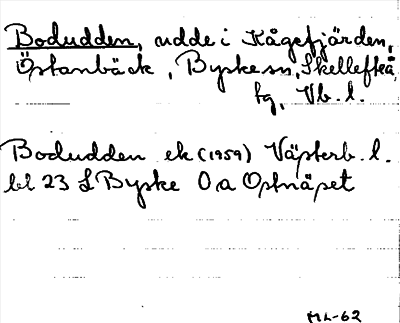 Bodudden, udde i Kågefjärden,
Östanbäck, Byske sn, Skellefteå
tg, Vb. l.
Bodudden ek (1959) Västerb. l.
bl 23 L Byske O a Ostnäset
ML-62